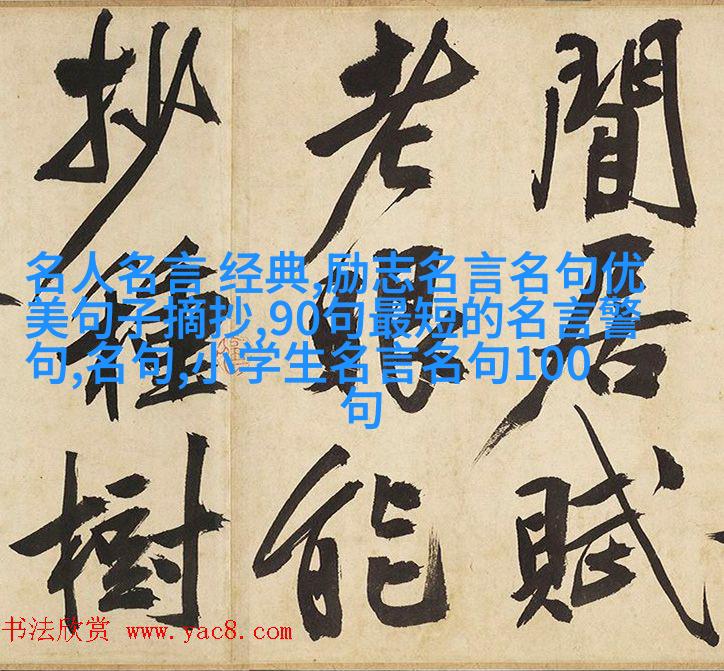 閒居賦
老眼能
抄種樹
名人名言 经典,励志名言名句优
美句子摘抄,90句最短的名言警
句,名句,小学生名言名句100
句
书法欣赏 www.yac8.com